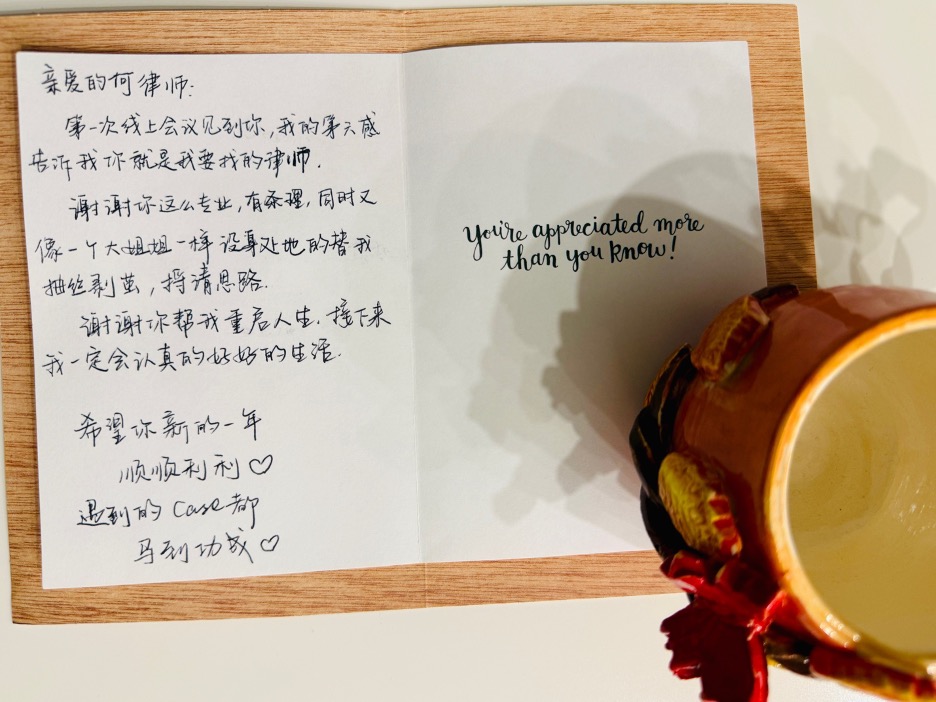 亲爱的何律师:
第一次线上会议见到你,我的第六感
告诉我你就是我要找的律师.
谢谢你这么专业,有条理,同时又
像一个大姐姐一样设身处地的替我
抽丝剥茧,捋清思路.
谢谢你帮我重启人生.接下来
我一定会认真的好好的生活.
希望你新的一年
顺顺利利♡
遇到的case都
马到功成♡
you're appreciated more
than you know!